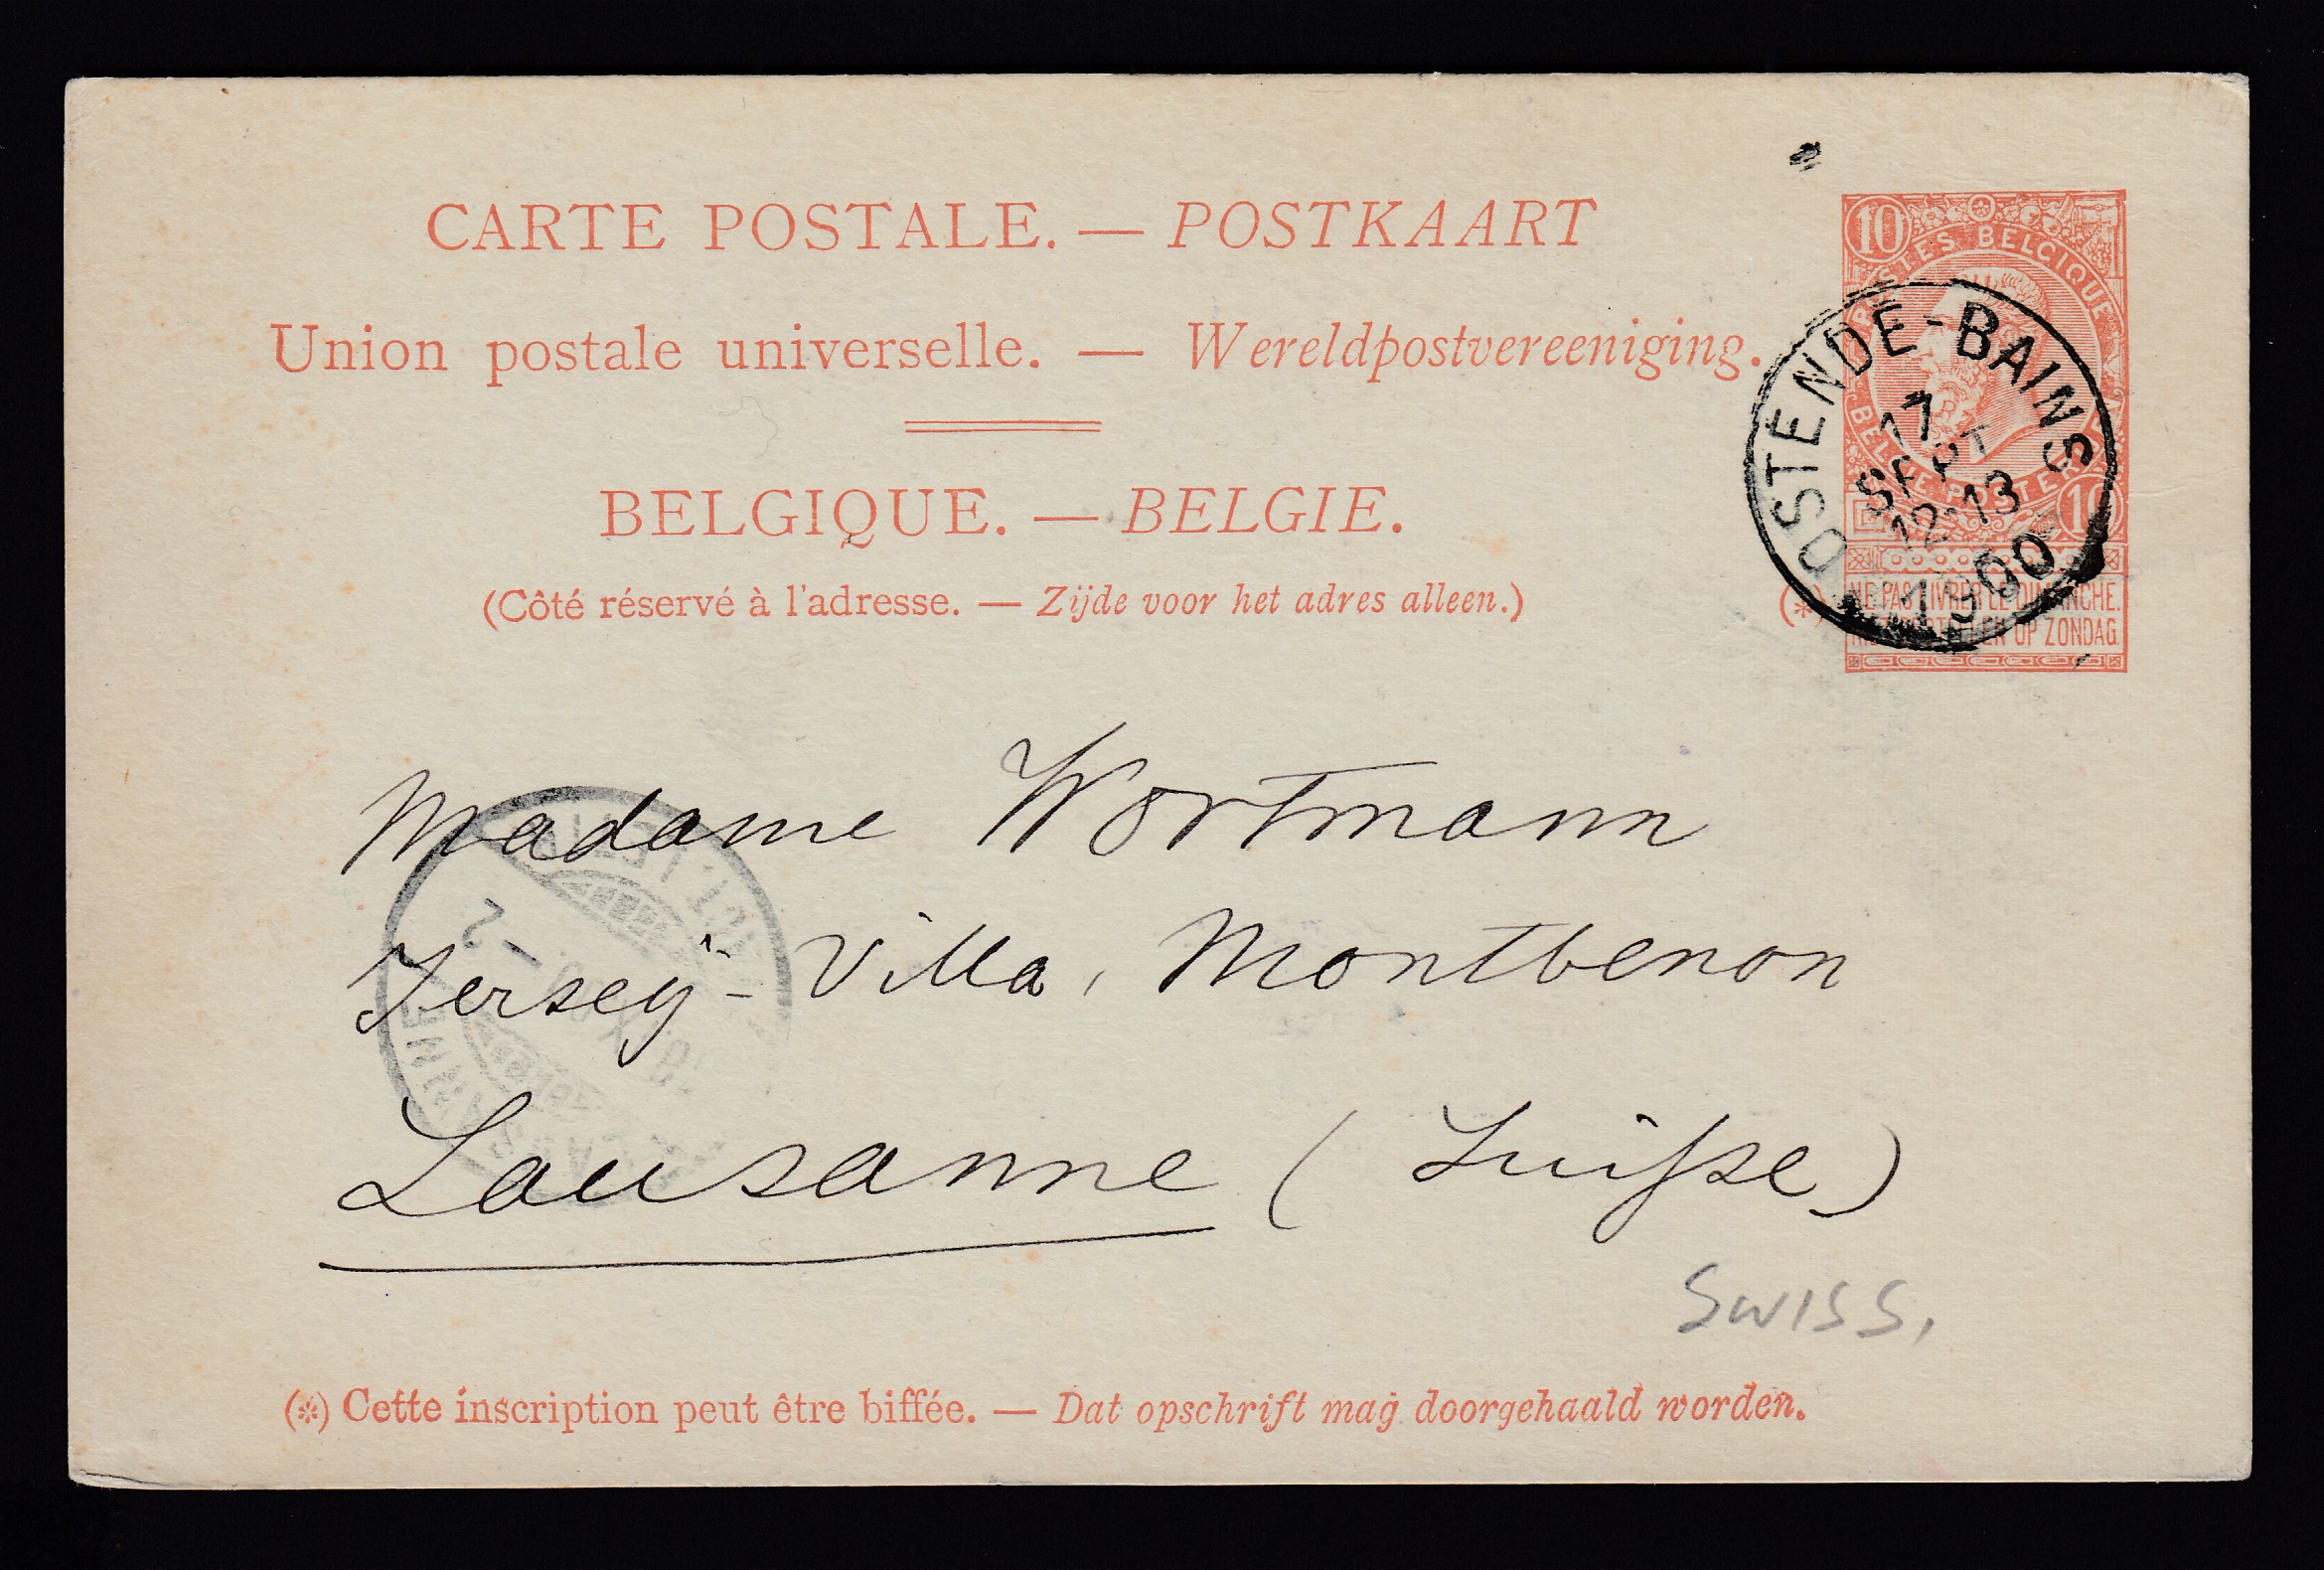 CARTE POSTALE. — POSTKAART
Union postale universelle. — Wereldpostvereeniging.
BELGIQUE. — BELGIE.
(Côté réservé à l'adresse. — Zijde voor het adres alleen.)
10
POSTES BELGIQUE
BELGIE POSTERIJEN
10
(*) NE PAS LIVRER LE DIMANCHE.
NIET BESTELLEN OP ZONDAG.
OSTENDE-BAINS
17
SEPT
12-13
1900
Madame Wortmann
Jersey-Villa, Montbenon
Lausanne (Suisse)
SWISS,
(*) Cette inscription peut être biffée. — Dat opschrift mag doorgehaald worden.